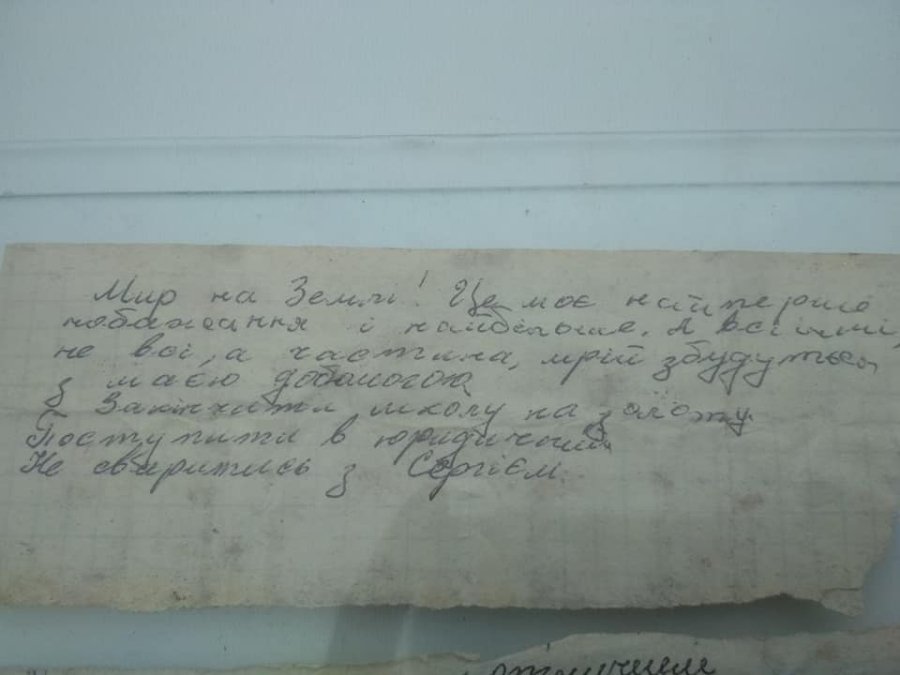 Мир на Землі! Це моє найперше
побажання і найбільше. А всі інші,
не всі, а частина, мрій збудуться
з маєю допомогою
Закінчити школу на золоту.
Поступити в юридичний
Не сваритись з Сергієм.